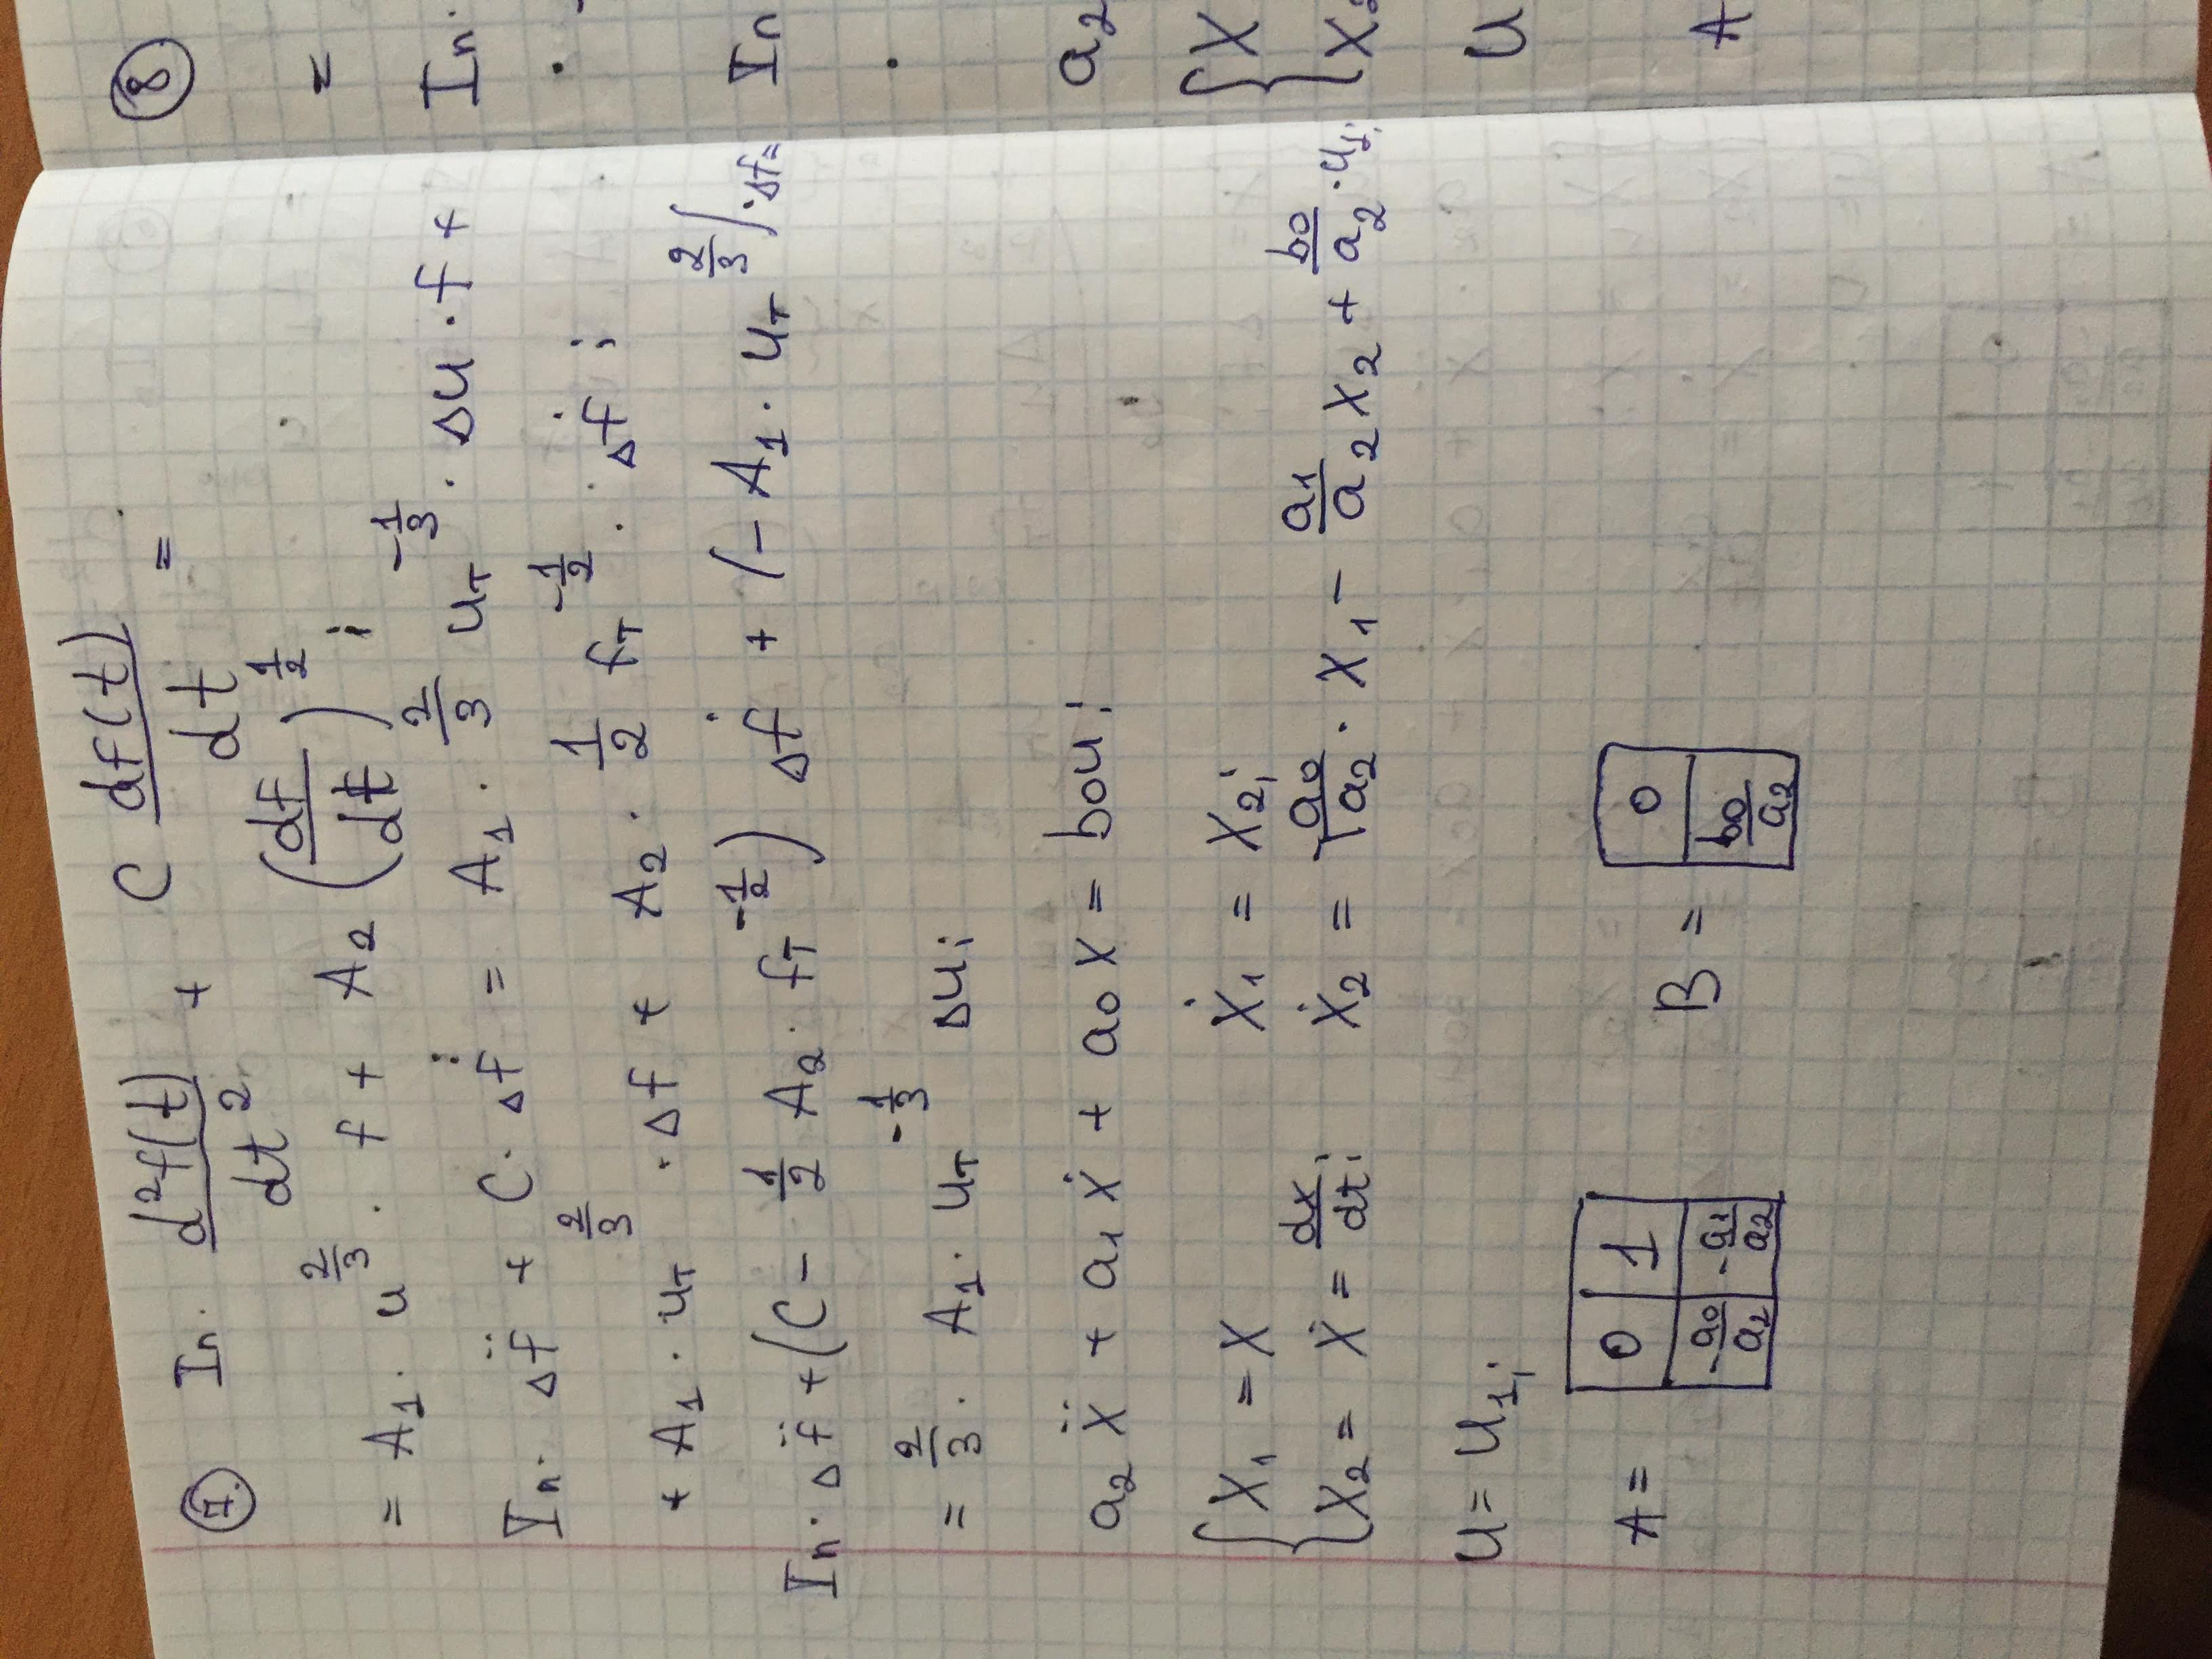 7. In · d²f(t)/dt² + C df(t)/dt =
= A₁ · u^(2/3) · f + A₂ (df/dt)^(1/2) ;
In · Δf̈ + C · Δḟ = A₁ · 2/3 u_T^(-1/3) · Δu · f +
+ A₁ · u_T^(2/3) · Δf + A₂ · 1/2 f_T^(-1/2) · Δḟ ;
In · Δf̈ + (C - 1/2 A₂ · f_T^(-1/2)) Δḟ + (- A₁ · u_T^(2/3)) · Δf =
= 2/3 · A₁ · u_T^(-1/3) Δu ;
a₂ ẍ + a₁ ẋ + a₀ x = b₀u ;
{ x₁ = x ẋ₁ = x₂ ;
x₂ = ẋ = dx/dt ; ẋ₂ = -a₀/a₂ · x₁ - a₁/a₂ x₂ + b₀/a₂ · u₁ ;
u = u₁ ;
A = 0 1 B = 0
-a₀/a₂ -a₁/a₂ b₀/a₂
8
=
In ·
In
a₂
{ x
x₂
u
A